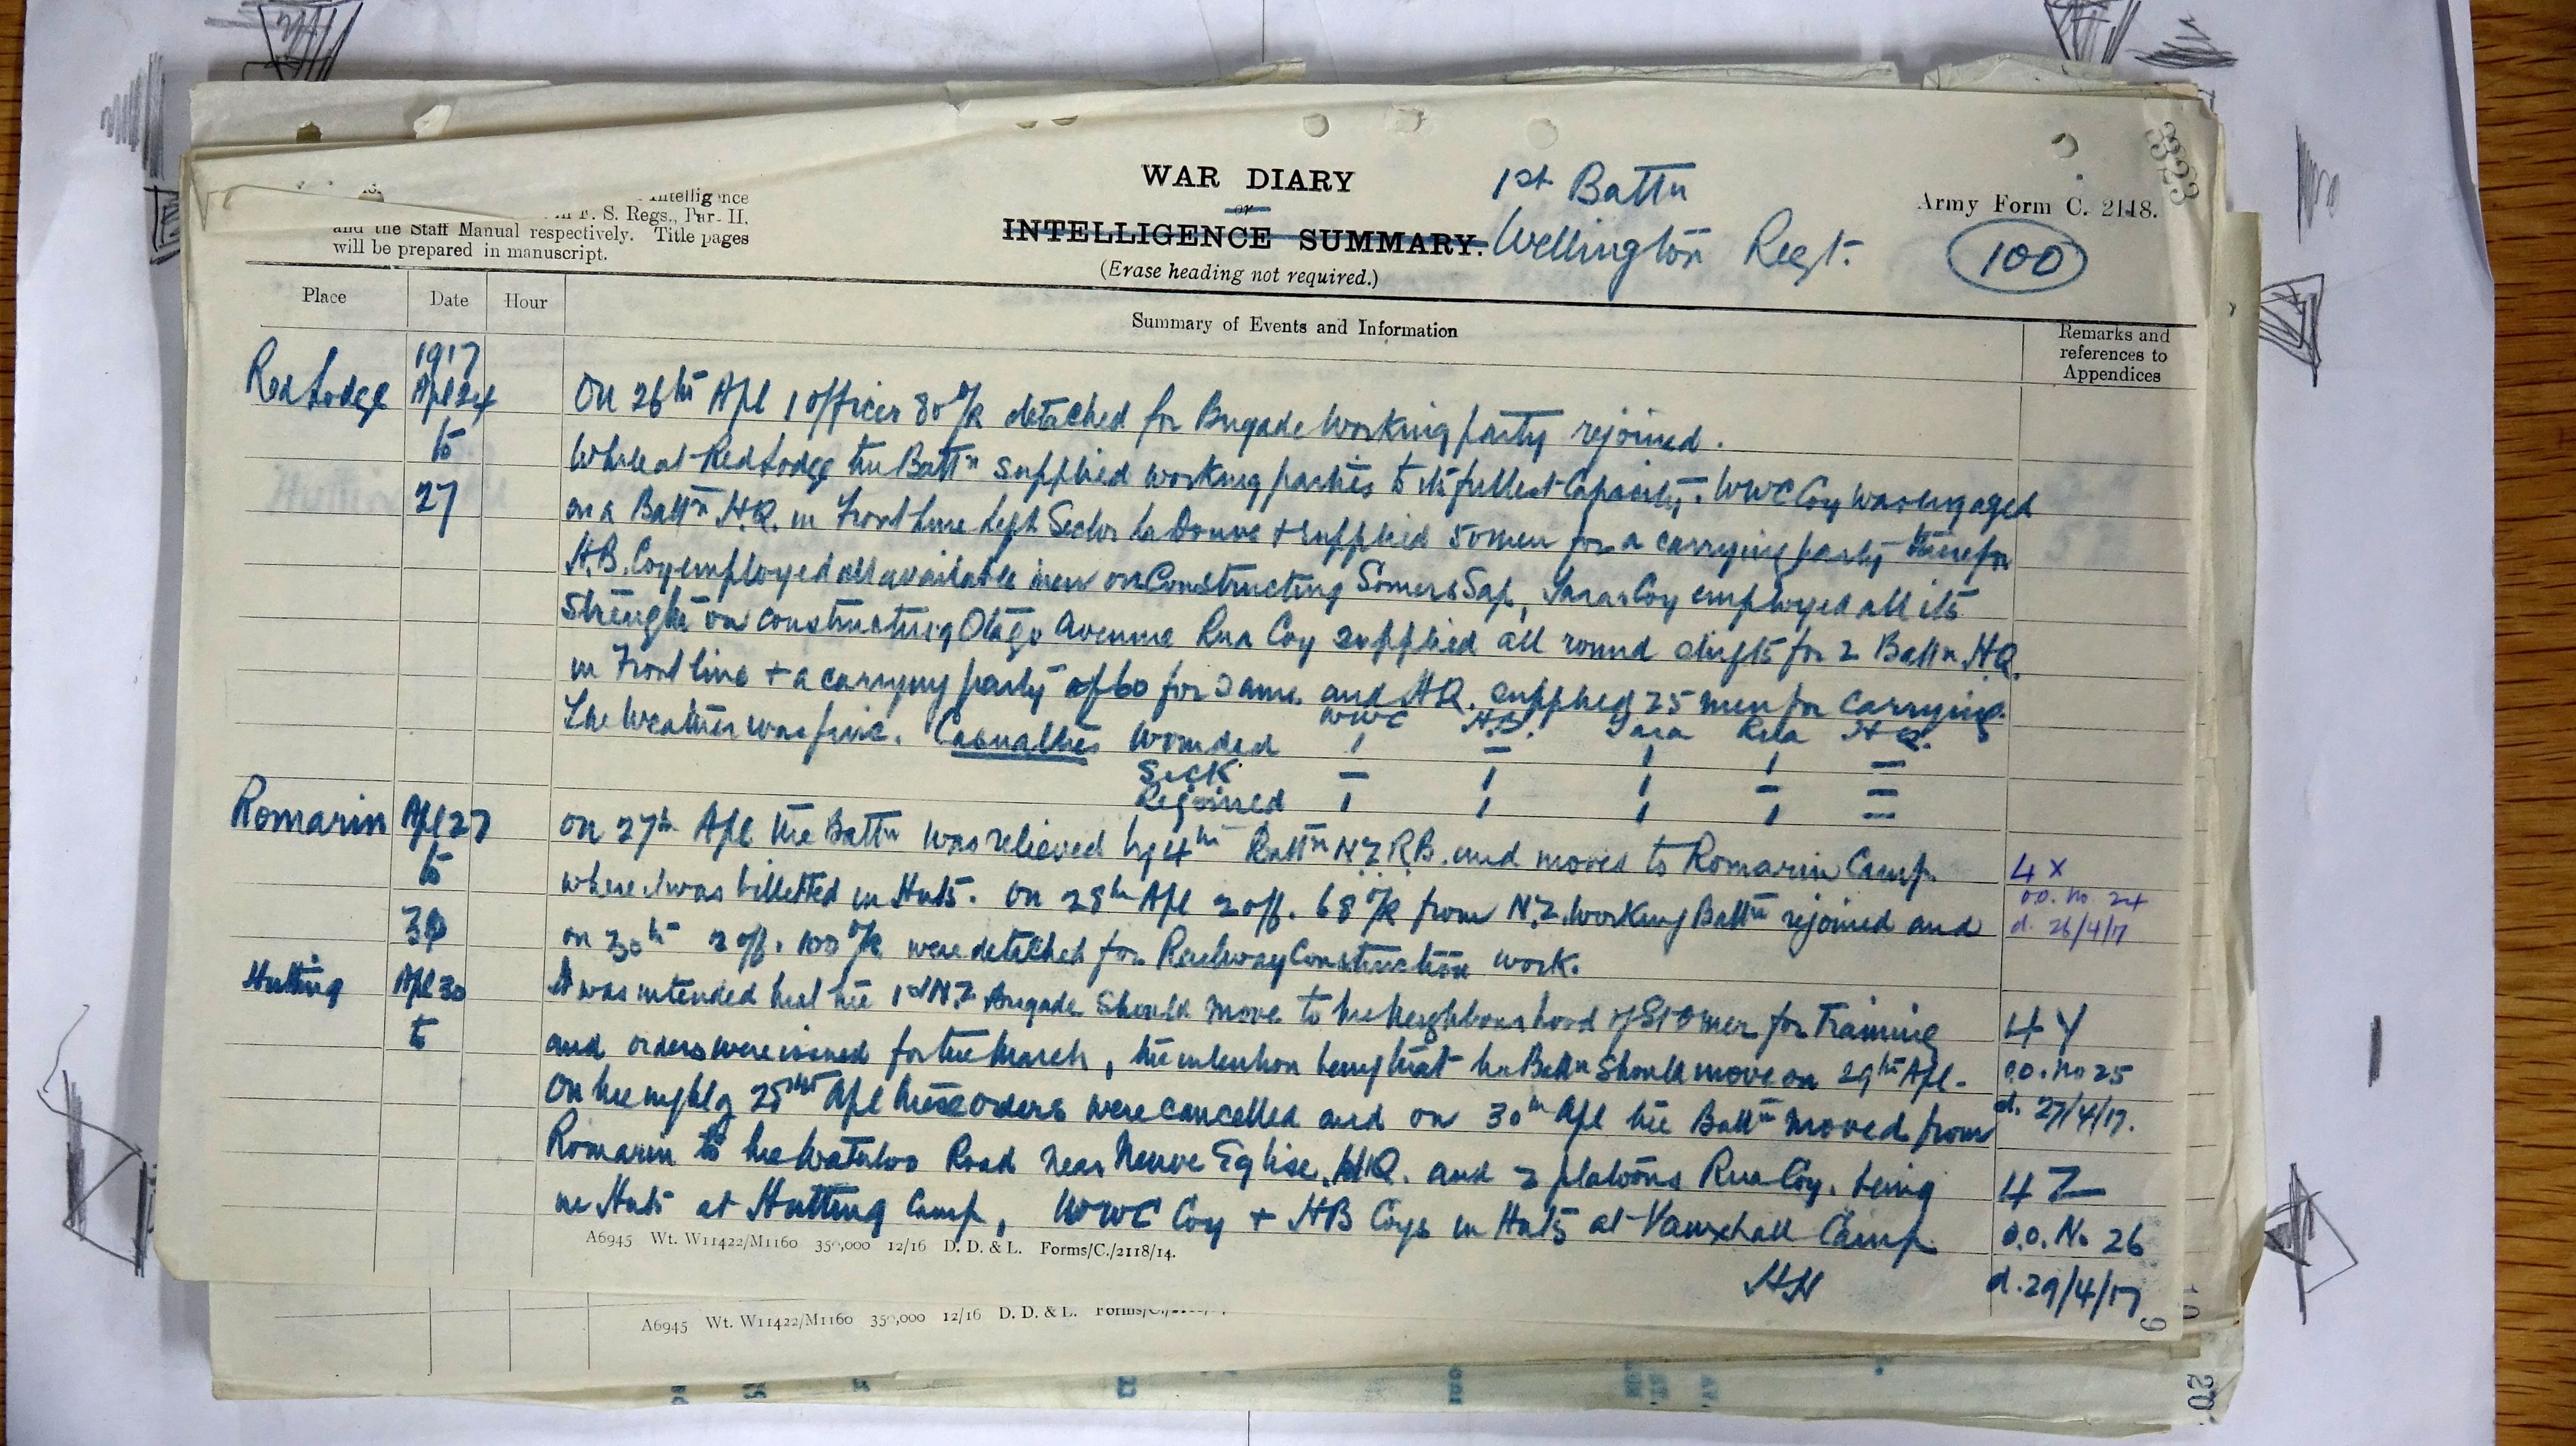 Intelligence
F. S. Regs., Part II.
and the Staff Manual respectively. Title pages
will be prepared in manuscript.
WAR DIARY
or
INTELLIGENCE SUMMARY.
(Erase heading not required.)
1st Battn
Wellington Regt.
Army Form C. 2118.
100
3323
Place Date Hour Summary of Events and Information Remarks and references to Appendices
Red Lodge 1917 Apl 24 to 27
On 26th Apl 1 officer 80 O/R detached for Brigade Working party rejoined.
While at Red Lodge the Battn supplied working parties to its fullest Capacity. WWC Coy was engaged
on a Battn H.Q. in Front Line Left Sector La Douve + supplied 50 men for a carrying party therefor
H.B. Coy employed all available men on Constructing Somers Sap, Taras Coy employed all its
strength on constructing Otago Avenue Rua Coy supplied all round shifts for 2 Battn H.Q.
in Front line + a carrying party of 60 for same and HQ. supplied 25 men for carrying.
The Weather was fine. Casualties WWC H.B. Tara Rua HQ.
Wounded 1 – 1 1 –
Sick – 1 1 – –
Rejoined 1 1 1 1 –
Romarin Apl 27 to 30
on 27th Apl the Battn was relieved by 4th Battn N.Z.R.B. and moved to Romarin Camp 4X
where it was billetted in Huts. On 28th Apl 2 off. 68 O/R from N.Z. Working Battn rejoined and O.O. No. 24
on 30th 2 off. 100 O/R were detached for Railway Construction work. d. 26/4/17
Hutting Apl 30 to
It was intended that the 1st N.Z. Brigade should move to the Neighbourhood of St Omer for Training 4Y
and orders were issued for the March, the intention being that the Battn should move on 29th Apl. O.O. No 25
On the night of 25th Apl these orders were cancelled and on 30th Apl the Battn moved from d. 27/4/17.
Romarin to the Waterloo Road near Neuve Eglise. HQ. and 2 platoons Rua Coy. being 4Z
in Huts at Hutting Camp, WWC Coy + HB Coys in Huts at Vauxhall Camp O.O. No 26
HH d. 29/4/17
A6945 Wt. W11422/M1160 350,000 12/16 D. D. & L. Forms/C./2118/14.
A6945 Wt. W11422/M1160 350,000 12/16 D. D. & L.
20